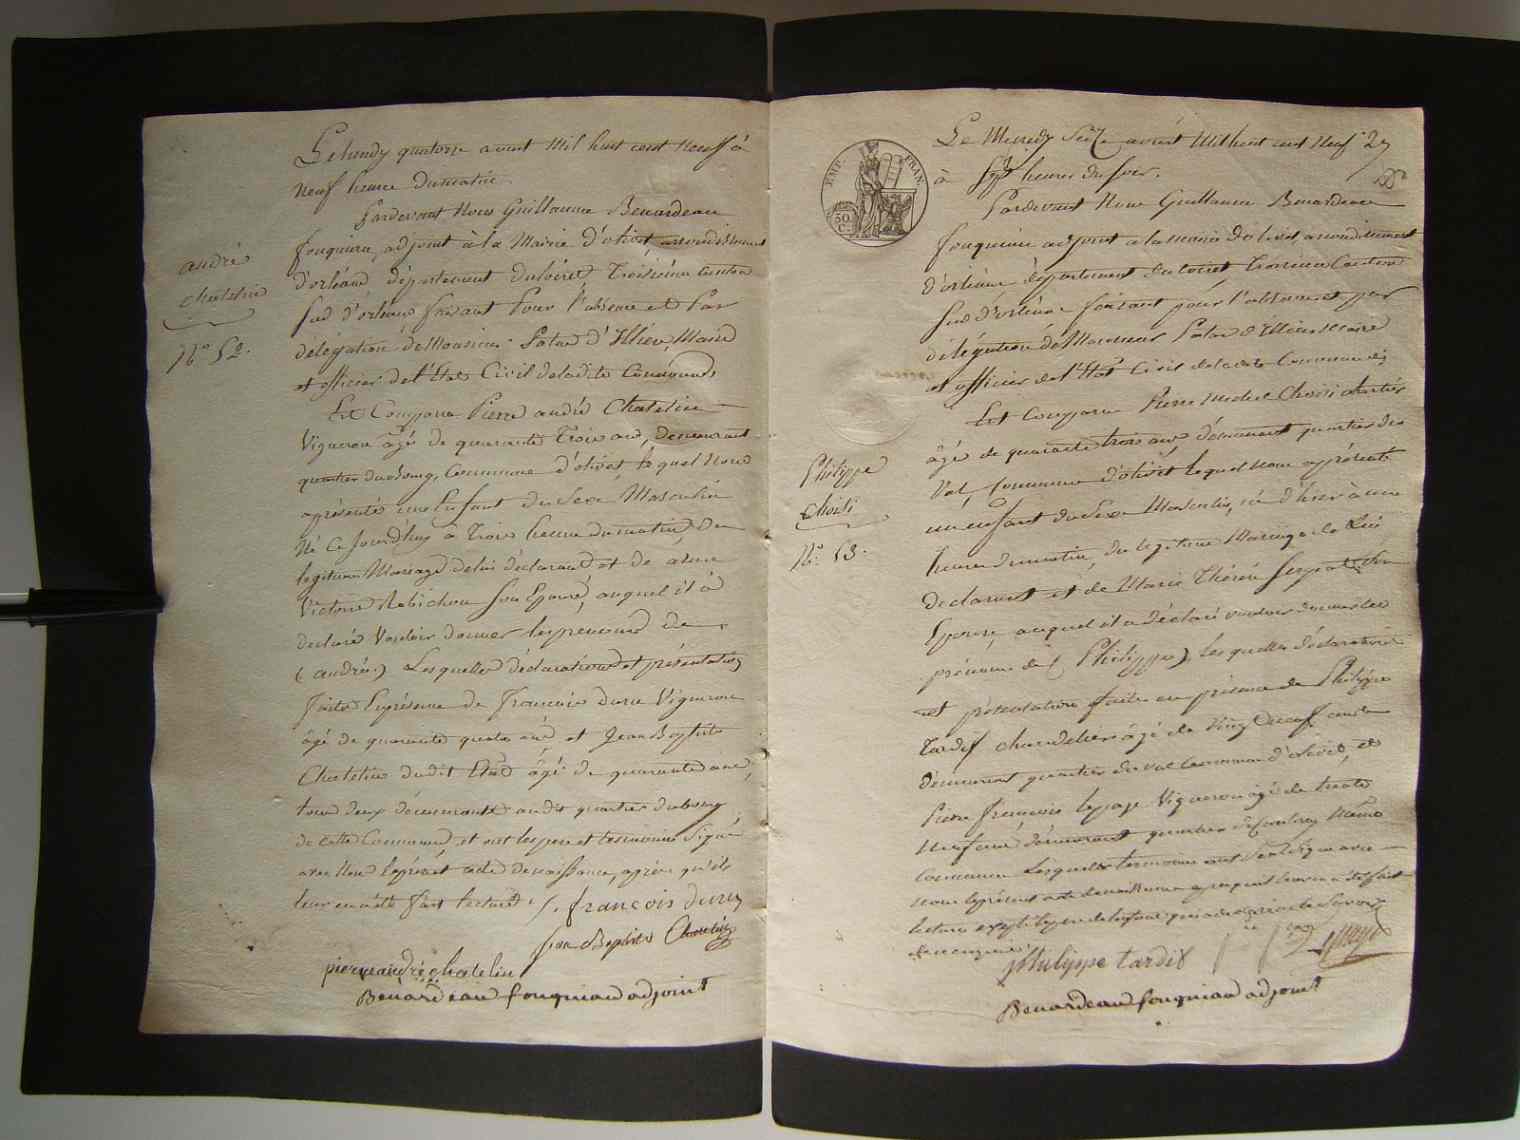 Le lundy quatorze aoust Mil huit cent Neuff à
Neuf heure du matin.
Pardevant Nous Guillaume Benardeau
fouquiau, adjoint à la Mairie d'olivet, arrondissement
d'orléans département du loiret Troisième Canton
Sud d'orléans faisant Pour l'absence et Par
délégation de Monsieur Patau d'Illiers, Maire
et officier de l'Etat Civil de ladite Commune
andré
Chatelin
N.º 52.
Est Comparu Pierre andré Chatelin
Vigneron âgé de quarante Trois ans, demeurant
quartier du bourg, Commune d'olivet lequel Nous
a présenté un Enfant du Sexe Masculin
Né Ce jourd'huy à Trois heure du matin, du
legitime Mariage de lui déclarant et de anne
Victoire Robichon Son Epouse, auquel il à
declaré Vouloir donner les prenoms de
(andré.) Lesquelles déclaration et présentation
faite En présence de françois duru Vigneron
âgé de quarante quatre ans et Jean Baptiste
Chatelin dudit Etat âgé de quarante ans,
tous deux demeurants audit quartier du bourg
de cette Commune, et ont les pere et temoins Signé
avec Nous le présent acte de naissance, après qu'il
leur en a été fait lecture ./. françois duru
jean Baptiste Chatelin
pierre andré chatelin
Benardeau fouquiau adjoint
EMP. FRAN.
50 C.
Le Mercredy Seize aoust Mil huit cent Neuf
27
à Sept heures du soir.
Pardevant Nous Guillaume Benardeau
fouquiau adjoint a la mairie d'olivet, arrondissement
d'orléans département du loiret, Troisieme Canton
Sud d'orléans faisant pour l'absence et par
délégation de Monsieur Patau d'Illiers Maire
et officier de l'Etat Civil de ladite Commune
Est Comparu Pierre Michel Choisi
âgé de quarante trois ans, demeurant quartier du
Val, Commune d'olivet lequel nous a présenté
un enfant du Sexe Masculin, né d'hier à une
Philippe
Choisi
N.º 53.
heure du matin, du legitime Mariage de Lui
declarant et de Marie Thérèse Son
Epouse, auquel il a déclaré vouloir donner les
prénoms de (Philippe), lesquelles déclaration
et présentation faite en présence de Philippe
Tardif âgé de Vingt Neuf ans
demeurant quartier du Val Commune d'olivet, et
Pierre françois lepage Vigneron âgé de trente
Neuf ans demeurant quartier Même
Commune Lesquels temoins ont Seul Signé avec
nous le présent acte de naissance
lecture
philippe tardif
Lepage
Benardeau fouquiau adjoint